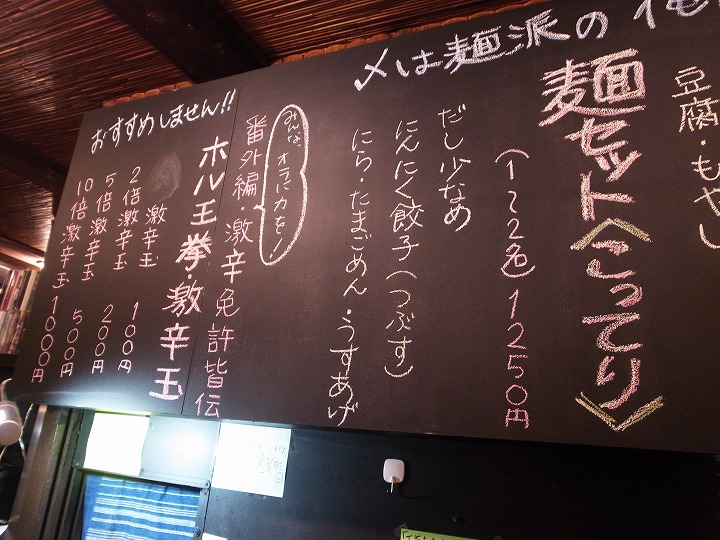 〆は麺派の
豆腐・もやし
麺セット〈こってり〉
(1〜2名)1250円
だし少なめ
にんにく餃子(つぶす)
にら・たまごめん・うすあげ
みんな、オラに力を!
番外編・激辛免許皆伝
ホル王拳・激辛玉
激辛玉 100円
2倍激辛玉 200円
5倍激辛玉 500円
10倍激辛玉 1000円
おすすめしません!!